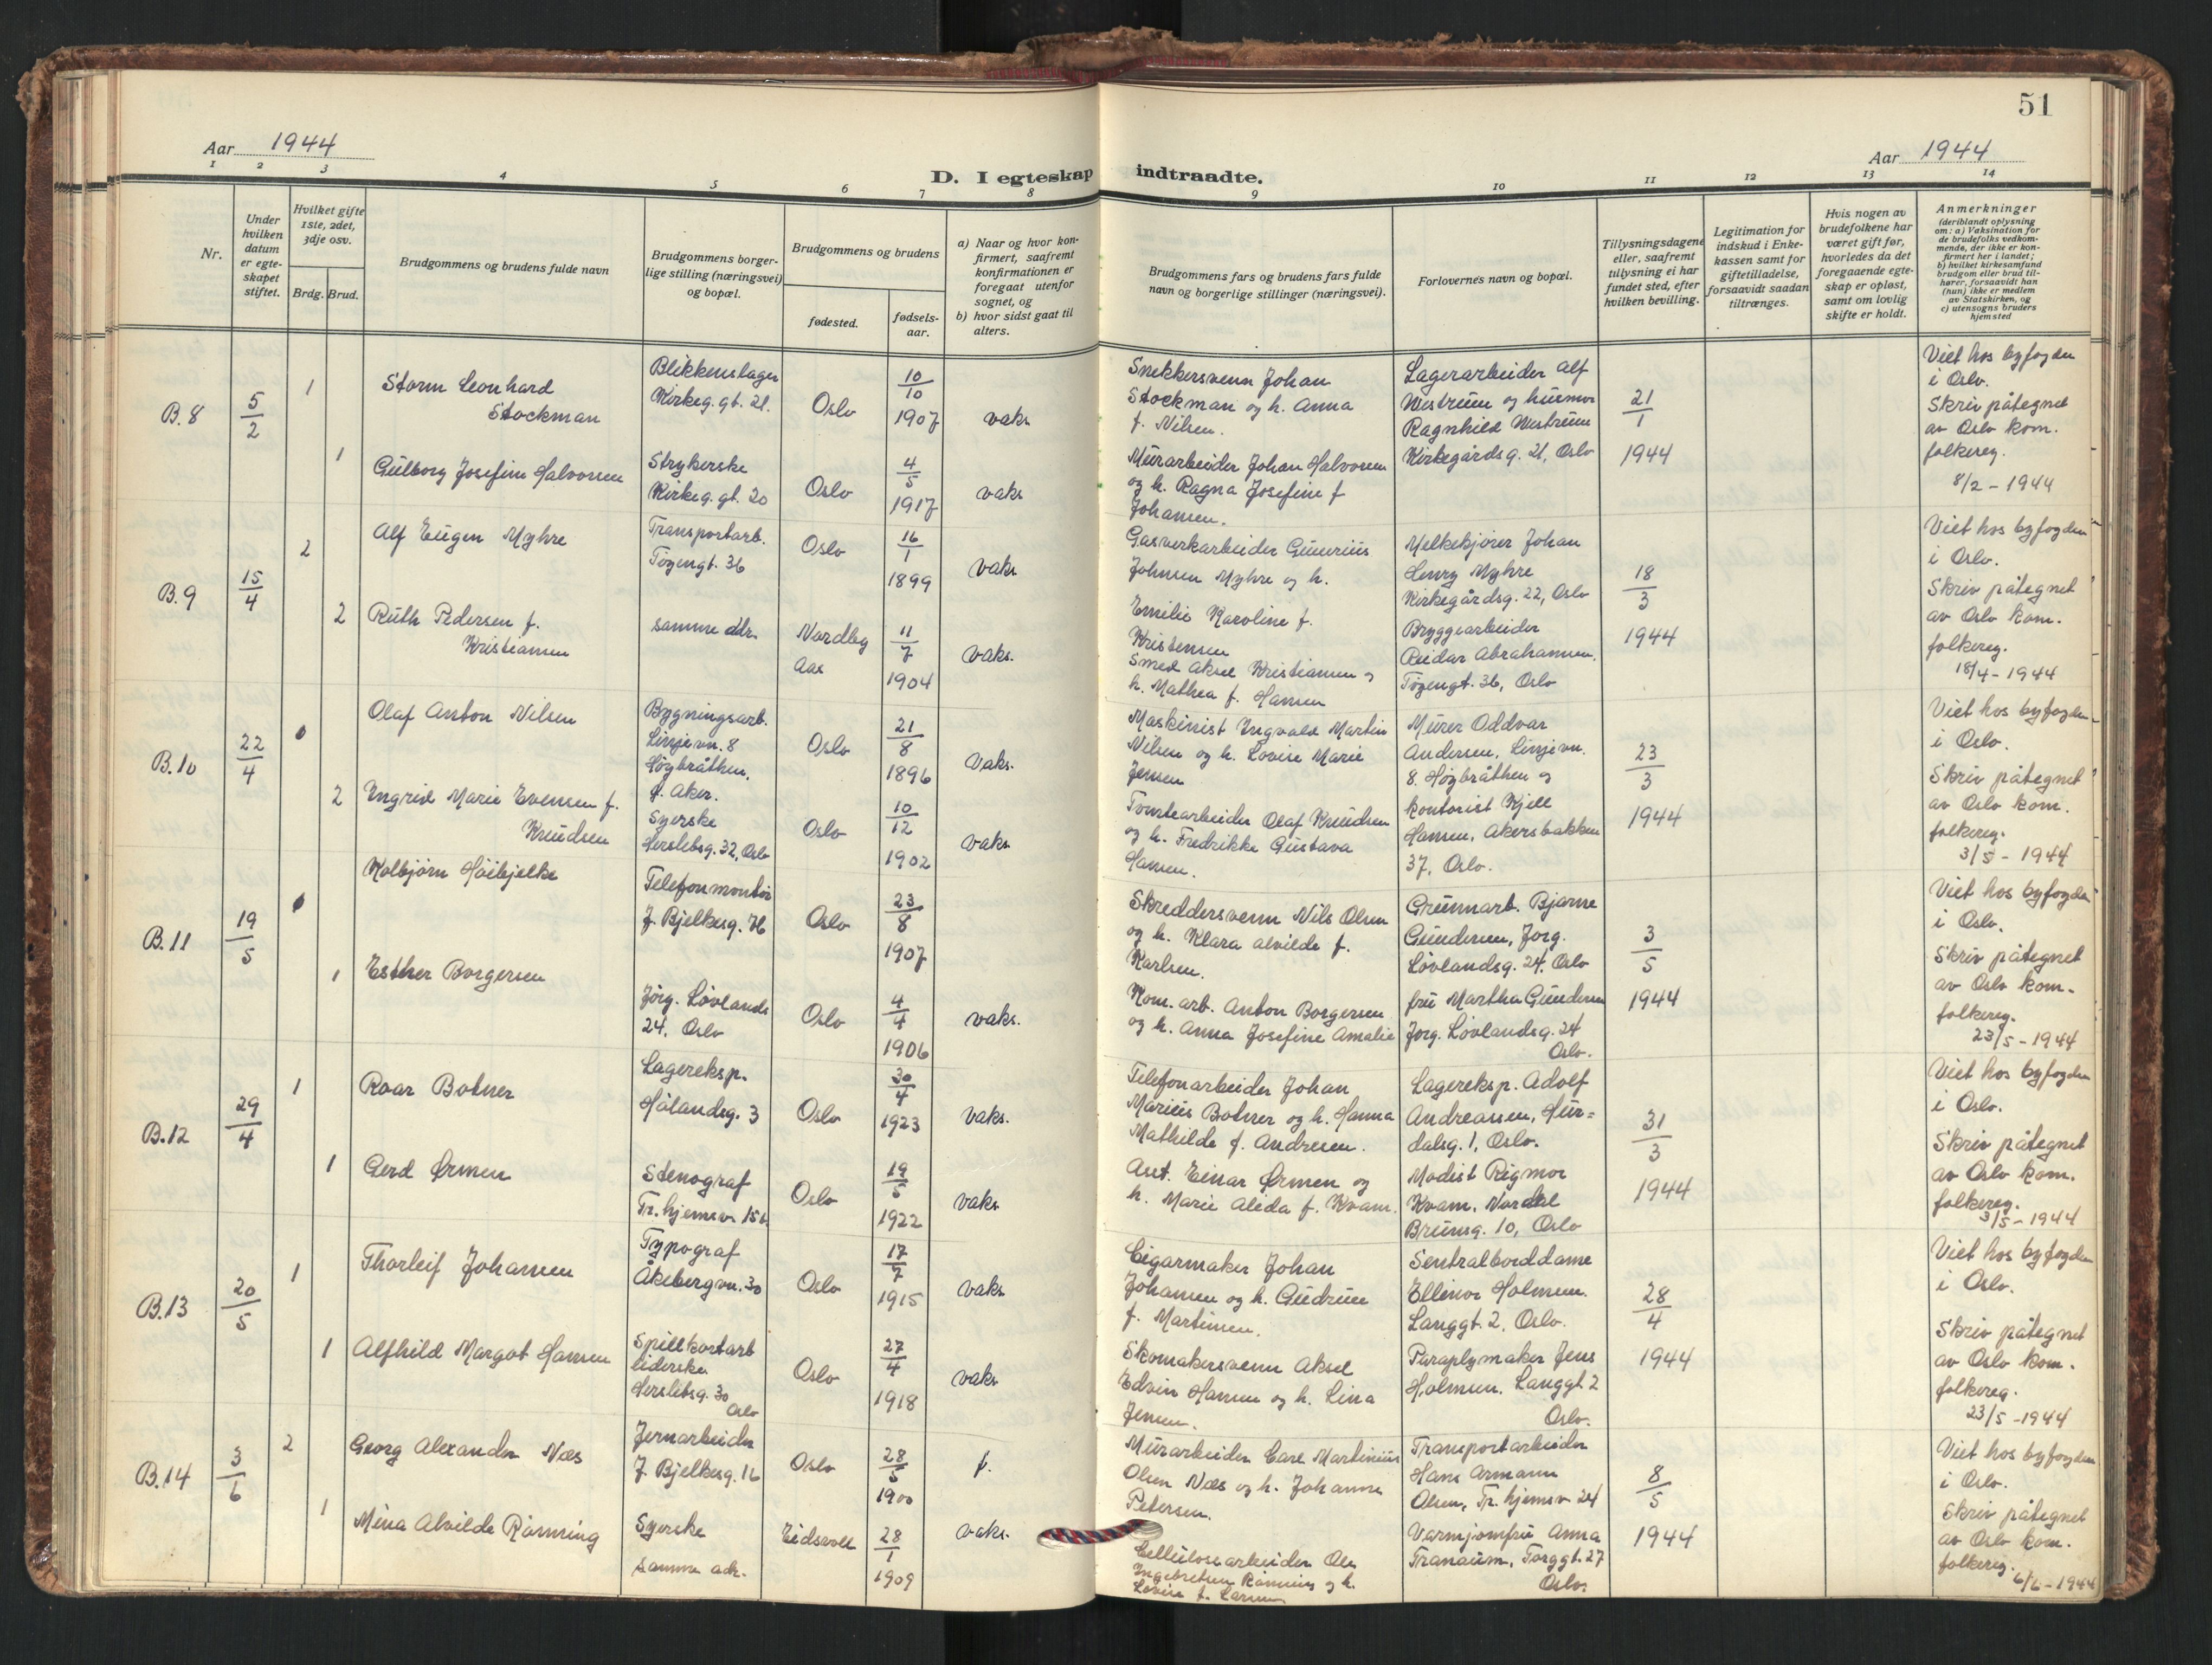 51
Aar 1944
Aar 1944
1 2 3 4 5 6 7 8 9 10 11 12 13 14
D. I egteskap indtraadte.
Nr.
Under hvilken datum er egteskapet stiftet.
Hvilket gifte 1ste, 2det, 3dje osv.
Brdg. Brud.
Brudgommens og brudens fulde navn
Brudgommens borgerlige stilling (næringsvei) og bopæl.
Brudgommens og brudens
fødested.
fødselsaar.
a) Naar og hvor konfirmert, saafremt konfirmationen er foregaat utenfor sognet, og
b) hvor sidst gaat til alters.
Brudgommens fars og brudens fars fulde navn og borgerlige stillinger (næringsvei).
Forlovernes navn og bopæl.
Tillysningsdagene eller, saafremt tillysning ei har fundet sted, efter hvilken bevilling.
Legitimation for indskud i Enkekassen samt for giftetilladelse, forsaavidt saadan tiltrænges.
Hvis nogen av brudefolkene har været gift før, hvorledes da det foregaaende egteskap er opløst, samt om lovlig skifte er holdt.
Anmerkninger
(deriblandt oplysning om: a) Vaksination for de brudefolks vedkommende, der ikke er konfirmert her i landet; b) hvilket kirkesamfund brudgom eller brud tilhører, forsaavidt han (hun) ikke er medlem av Statskirken, og c) utensogns bruders hjemsted
B.8
5/2
1
Storm Leonhard
Stockman
Blikkenslager
Kirkeg.gt. 21.
Oslo
10/10
1907
vaks.
Snekkersvenn Johan
Stockman og h. Anna
f. Nilsen.
Lagerarbeider Alf
Westrum og husmor
Ragnhild Westrum
Kirkegårdsg. 21, Oslo
21/1
1944
Viet hos byfogden
i Oslo.
Skriv påtegnet
av Oslo kom.
folkereg.
8/2 - 1944
1
Gulborg Josefine Halvorsen
Strykerske
Kirkeg.gt. 20
Oslo
4/5
1917
vaks
Murarbeider Johan Halvorsen
og h. Ragna Josefine f.
Johansen.
B.9
15/4
2
Alf Eugen Myhre
Transportarb.
Tøyengt. 36
Oslo
16/1
1899
vaks.
Gasverkarbeider Gunerius
Johnsen Myhre og h.
Emilie Karoline f.
Kristensen
Melkekjører Johan
Henry Myhre
Kirkegårdsg. 22, Oslo
Bryggearbeider
Reidar Abrahamsen.
Tøyengt. 36, Oslo
18/3
1944
Viet hos byfogden
i Oslo.
Skriv påtegnet
av Oslo kom.
folkereg.
18/4 - 1944
2
Ruth Pedersen f.
Kristiansen
samme adr.
Nordby
Aas
11/7
1904
vaks.
Smed Aksel Kristiansen og
h. Mathea f. Hansen
B.10
22/4
Olaf Anton Nilsen
Bygningsarb.
Linjevn. 8
Høybråthen.
Ø. Aker.
Oslo
21/8
1896
vaks.
Maskinist Ingvald Martin
Nilsen og h. Lovise Marie
Jensen
Murer Oddvar
Andersen, Linjevn.
8. Høybråthen og
kontorist Kjell
Hansen, Akersbakken
37, Oslo.
23/3
1944
Viet hos byfogden
i Oslo.
Skriv påtegnet
av Oslo kom.
folkereg.
3/5 - 1944
2
Ingrid Marie Evensen f.
Knudsen
Syerske
Herslebsg. 32, Oslo
Oslo
10/12
1902
vaks.
Tomtearbeider Olaf Knudsen
og h. Fredrikke Gustava
Hansen.
B.11
19/5
Kolbjørn Høibjelke
Telefonmontør
J. Bjelkesg. 76
Oslo
23/8
1907
Skreddersvenn Nils Olsen
og h. Klara Alvilde f.
Karlsen.
Grunnarb. Bjarne
Gundersen, Jørg.
Løvlandsg. 24, Oslo
fru Martha Gundersen
Jørg. Løvlandsg. 24
Oslo.
3/5
1944
Viet hos byfogden
i Oslo.
Skriv påtegnet
av Oslo kom.
folkereg.
23/5 - 1944
1
Esther Borgersen
Jørg. Løvlands
24, Oslo
Oslo
4/4
1906
vaks.
Kom. arb. Anton Borgersen
og h. Anna Josefine Amalie
B.12
29/4
1
Roar Botner
Lagereksp.
Hølandsg. 3
Oslo
30/4
1923
vaks.
Telefonarbeider Johan
Marius Botner og h. Hanna
Mathilde f. Andresen.
Lagereksp. Adolf
Andreassen, Hur=
dalsg. 1, Oslo.
Modist Rigmor
Kvam, Nordal
Brunsg. 10, Oslo
31/3
1944
Viet hos byfogden
i Oslo.
Skriv påtegnet
av Oslo kom.
folkereg.
3/5 - 1944
1
Gerd Ørmen
Stenograf
Tr.hjemsv. 15b
Oslo
19/5
1922
vaks.
Ast. Einar Ørmen og
h. Marie Alida f. Kvam.
B.13
20/5
1
Thorleif Johansen
Typograf
Åkebergvn. 30
Oslo
17/7
1915
vaks.
Cigarmaker Johan
Johansen og h. Gudrun
f. Martinsen.
Sentralborddame
Ellinor Holmsen.
Langgt. 2. Oslo.
Paraplymaker Jens
Holmsen. Langgt. 2
Oslo.
28/4
1944
Viet hos byfogden
i Oslo.
Skriv påtegnet
av Oslo kom.
folkereg.
23/5 - 1944
1
Alfhild Margot Hansen
Spillkortarb
eiderske
Herslebsg. 30
Oslo
Oslo
27/4
1918
vaks.
Skomakersvenn Aksel
Edvin Hansen og h. Lina
Jensen.
B.14
3/6
2
Georg Alexander Næs
Jernarbeider
J. Bjelkesg. 16
Oslo
28/5
1900
f.
Murarbeider Carl Martinius
Olsen Næs og h. Johanne
Petersen.
Transportarbeider
Hans Armann
Olsen, Tr. hjemsv. 24
Varmjomfru Anna
Tranaum, Torggt. 27
Oslo.
8/5
1944
Viet hos byfogden
i Oslo.
Skriv påtegnet
av Oslo kom.
folkereg.
6/6 - 1944
1
Mina Alvilde Rønning
Syerske
samme adr.
Eidsvoll
28/1
1909
vaks.
Cellulosearbeider Ole
Ingebretsen Rønning og h.
Lovise f. Larsen